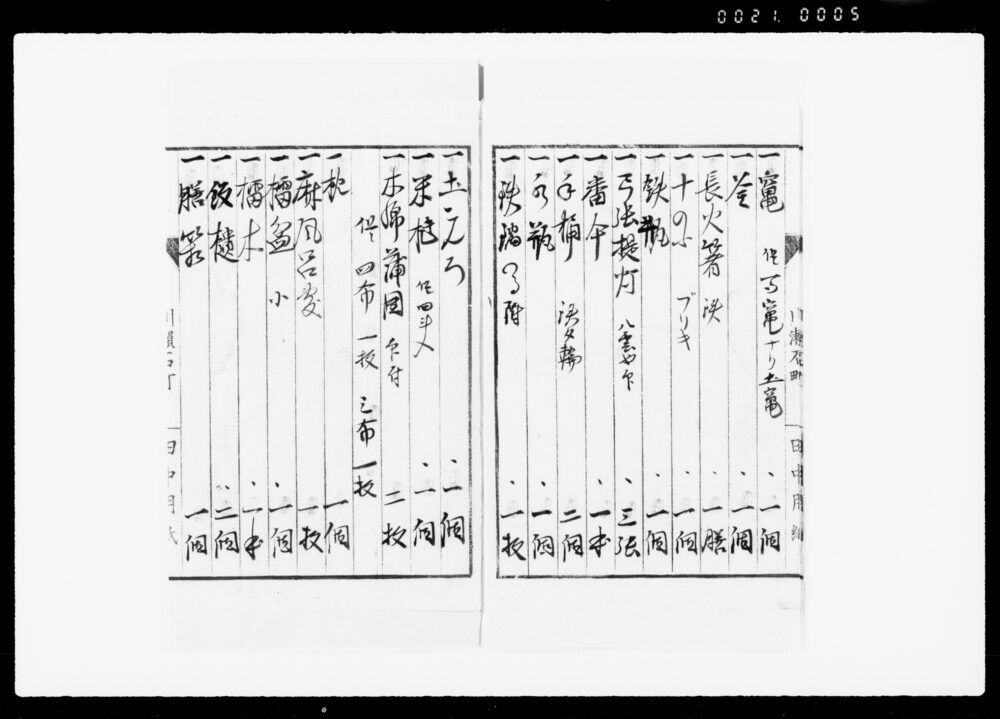 0021.0005
一竈 但馬竈ナリ土竈 一個
一釜 一個
一長火箸 鉄 一膳
一十の小 ブリキ 一個
一鉄瓶 一個
一弓張提灯 八雲や印 三張
一番傘 一本
一手桶 鉄タ輪 二個
一水瓶 一個
一鉄瑠 附 一枚
一土 一個
一米櫃 但四斗入 一個
一木綿蒲団 印付 二枚
但 四布 一枚 三布 一枚
一枕 一個
一麻風呂敷 一枚
一擂盆 小 一個
一擂木 一本
一飯櫃 二個
一膳 一個
川瀬石町
田中用紙
川瀬石町
田中用紙